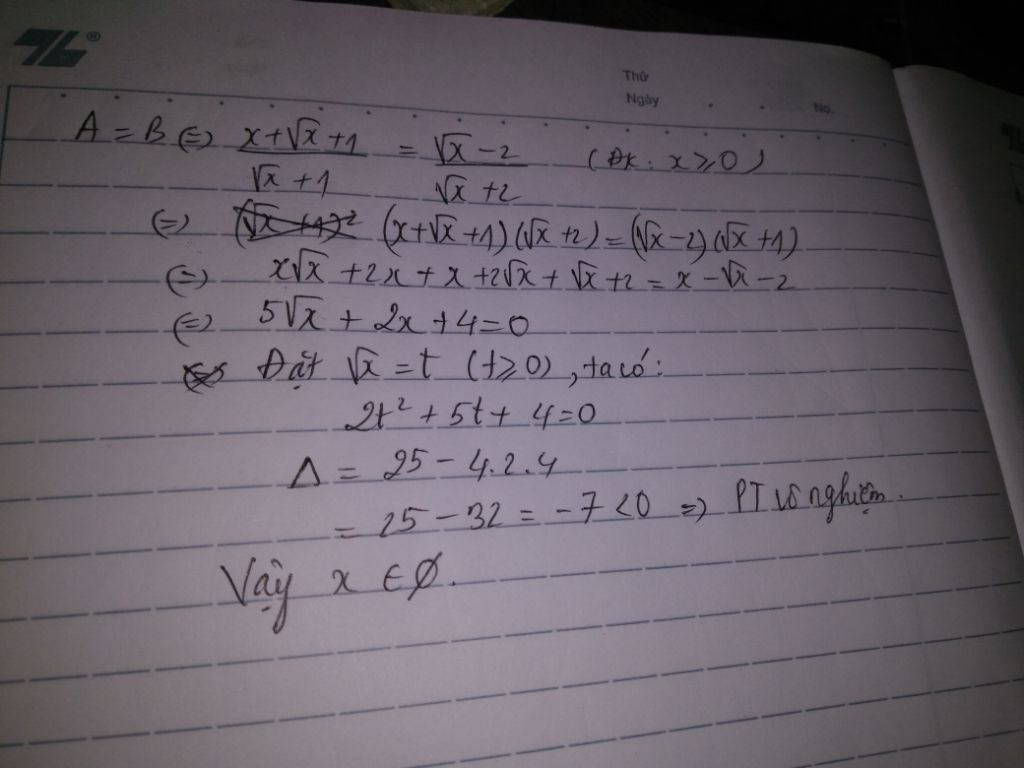 Thứ
Ngày No.
A = B ⇔ \frac{x+√x+1}{√x+1} = \frac{√x-2}{√x+2} (ĐK: x ≥ 0)
⇔ (x+√x+1)(√x+2)=(√x-2)(√x+1)
⇔ x√x +2x + x +2√x + √x +2 = x -√x -2
⇔ 5√x + 2x + 4 = 0
Đặt √x = t (t ≥ 0), ta có:
2t² + 5t + 4 = 0
Δ = 25 - 4.2.4
= 25 - 32 = -7 < 0 => PT vô nghiệm.
Vậy x ∈ Ø.